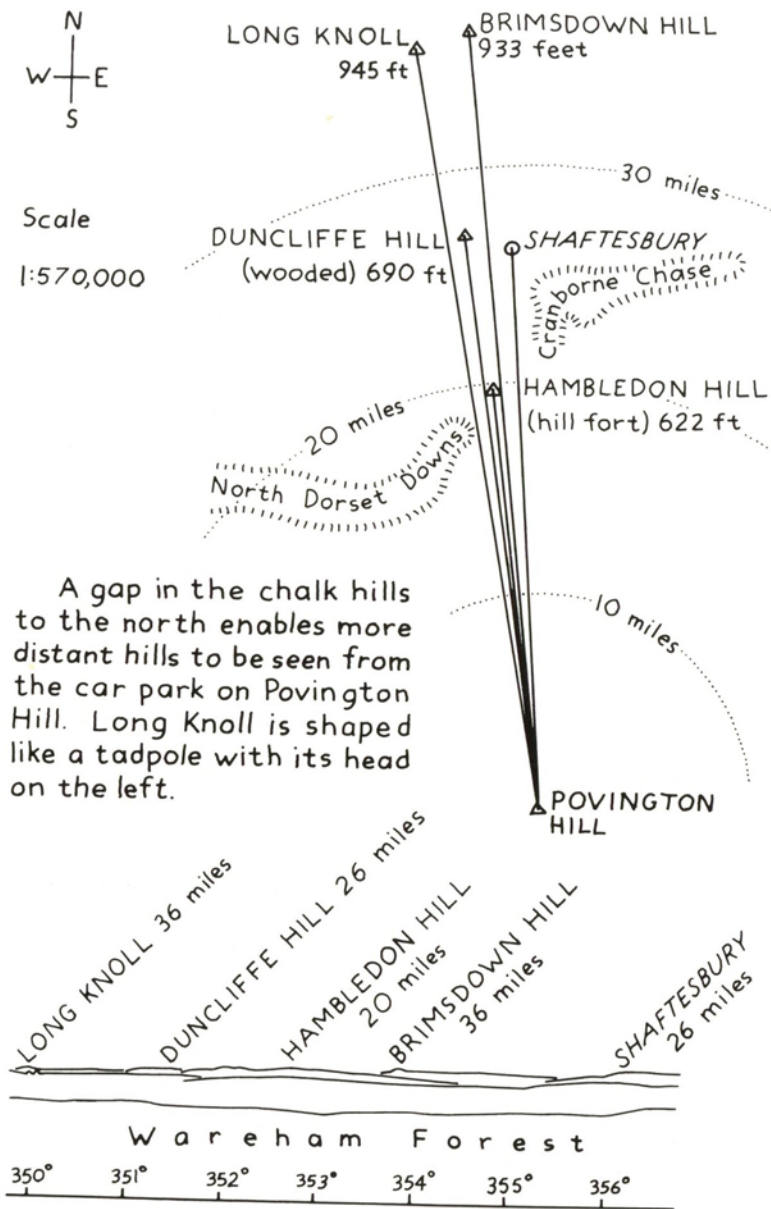 N
W E
S
LONG KNOLL
945 ft
BRIMSDOWN HILL
933 feet
30 miles
Scale
1:570,000
DUNCLIFFE HILL
(wooded) 690 ft
SHAFTESBURY
Cranborne Chase
HAMBLEDON HILL
(hill fort) 622 ft
20 miles
North Dorset Downs
A gap in the chalk hills
to the north enables more
distant hills to be seen from
the car park on Povington
Hill. Long Knoll is shaped
like a tadpole with its head
on the left.
10 miles
POVINGTON
HILL
LONG KNOLL 36 miles
DUNCLIFFE HILL 26 miles
HAMBLEDON HILL
20 miles
BRIMSDOWN HILL
36 miles
SHAFTESBURY
26 miles
Wareham Forest
350° 351° 352° 353° 354° 355° 356°